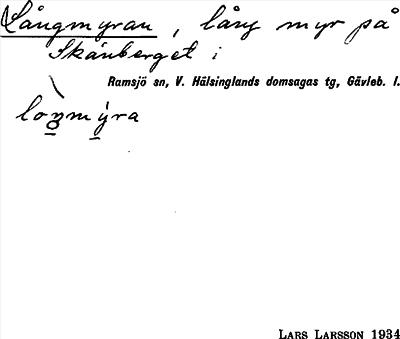 Långmyran, lång myr på
Skånberget i
Ramsjö sn, V. Hälsinglands domsagas tg, Gävleb. l.
loŋmýra
LARS LARSSON 1934